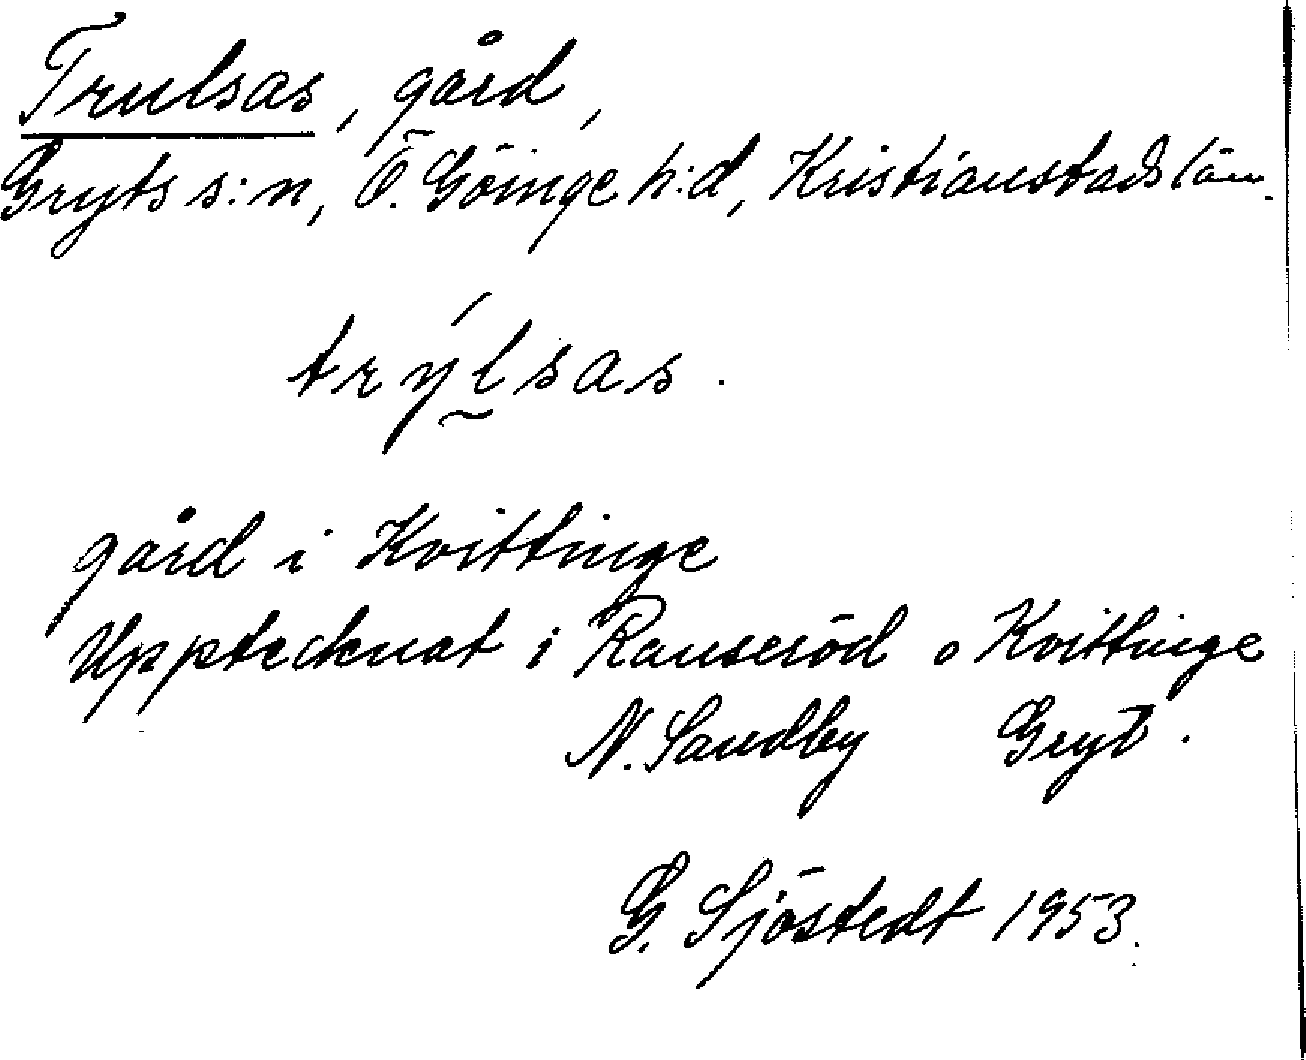 Trulsas, gård,
Gryts s:n, Ö. Göinge h:d, Kristianstads län.
trýl̰sas.
gård i Kvittinge
Upptecknat i Ranseröd o Kvittinge
N. Sandby Gryt.
G. Sjöstedt 1953.